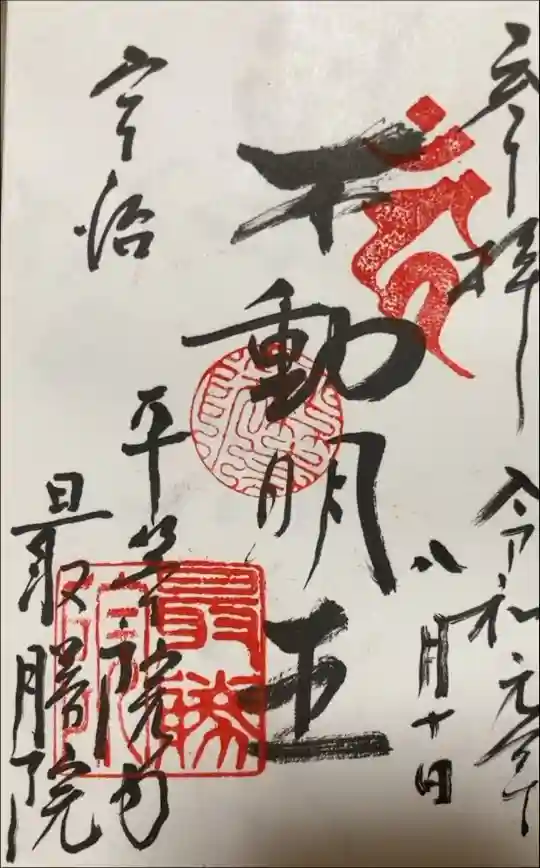 奉拝
令和元年
八月十日
不動明王
宇治
平等院内
最勝院
最勝院